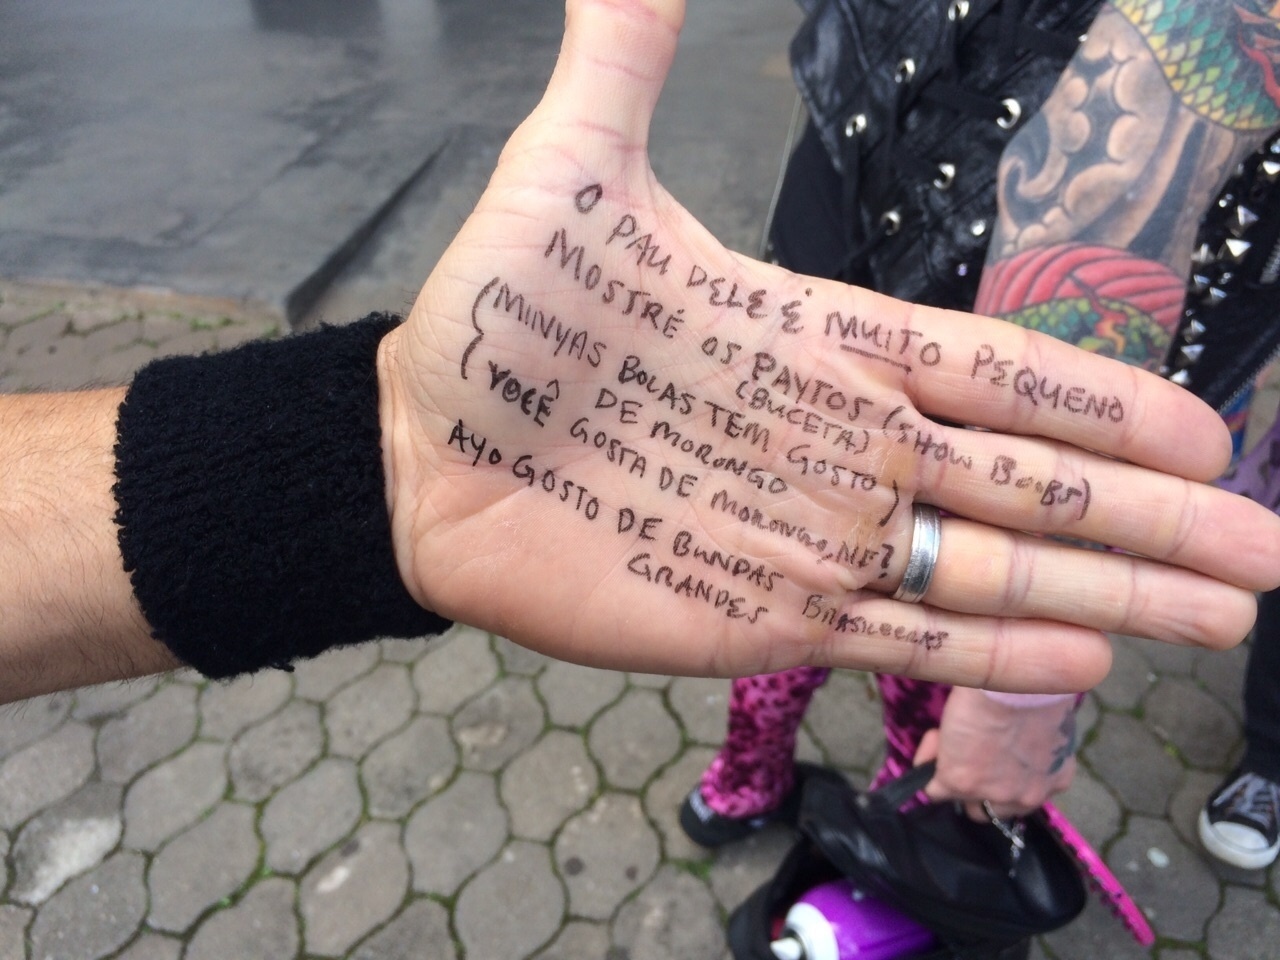 O PAU DELE É MUITO PEQUENO
MOSTRÉ OS PAYTOS (SHOW BOOBS)
(BUCETA)
(MINYAS BOLAS TEM GOSTO
DE MORONGO)
VOCÊ GOSTA DE MORONGO, NE?
AYO GOSTO DE BUNDAS BRASILEERAS
GRANDES